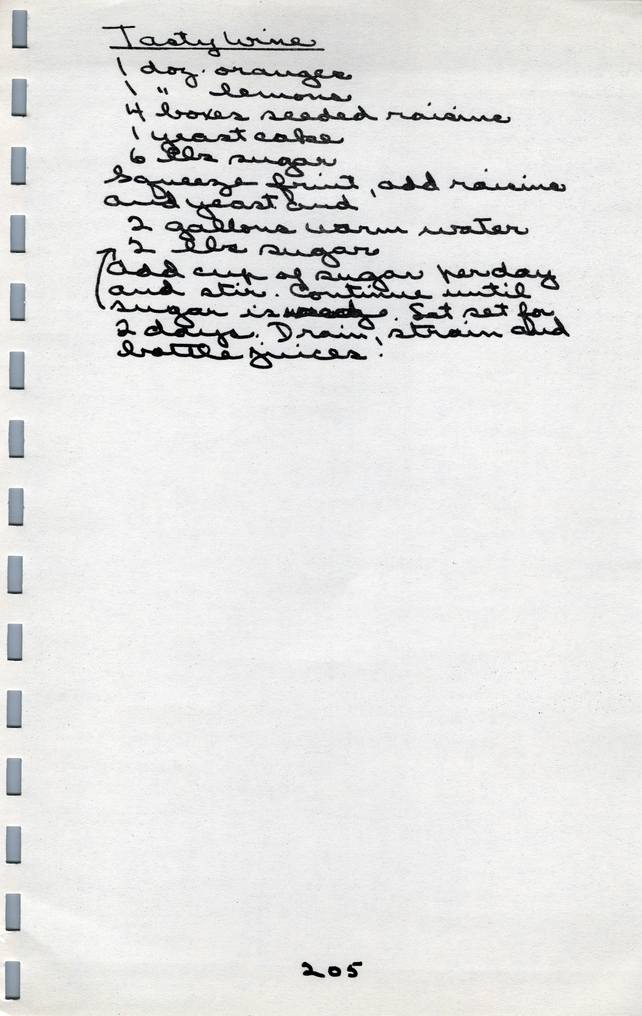 Tasty Wine
1 doz. oranges
1 " lemons
4 boxes seeded raisins
1 yeast cake
6 lbs sugar
Squeeze fruit, add raisins
and yeast and
2 gallons warm water
2 lbs sugar
Add cup of sugar per day
and stir. Continue until
sugar is . Set set for
2 days. Drain, strain and
bottle juices.
205